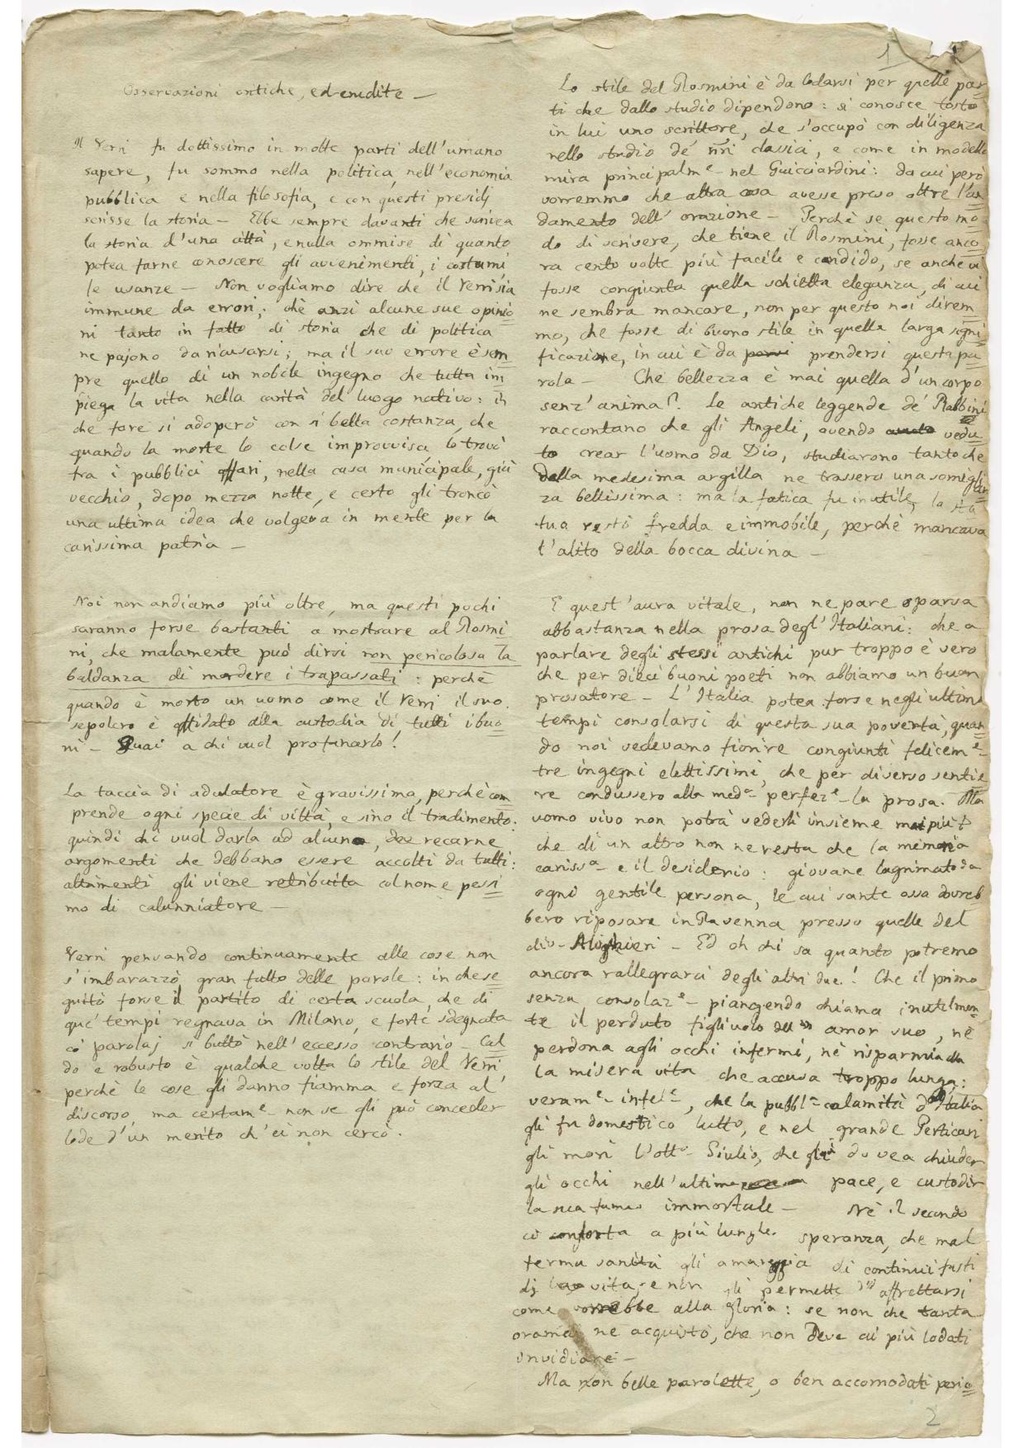 Osservazioni critiche, ed erudite —
Il Verri fu dottissimo in molte parti dell'umano
sapere, fu sommo nella politica, nell'economia
pubblica e nella filosofia, e con questi presidj
scrisse la storia — Ebbe sempre davanti che scrivea
la storia d'una città, e nulla ommise di quanto
potea farne conoscere gli avvenimenti, i costumi
le usanze — Non vogliamo dire che il Verri sia
immune da errori; chè anzi alcune sue opinio
ni tanto in fatto di storia che di politica
ne pajono da ricusarsi; ma il suo errore è sem
pre quello di un nobile ingegno che tutta im
piega la vita nella carità del luogo nativo: in
che fare si adoperò con sì bella costanza, che
quando la morte lo colse improvvisa, lo trovò
tra i pubblici affari, nella casa municipale, già
vecchio, dopo mezza notte, e certo gli troncò
una ultima idea che volgeva in mente per la
carissima patria —
Noi non andiamo più oltre, ma questi pochi
saranno forse bastanti a mostrare al Rosmi
ni, che malamente può dirsi non pericolosa la
baldanza di mordere i trapassati: perchè
quando è morto un uomo come il Verri il suo
sepolcro è affidato alla custodia di tutti i buo
ni — Guai a chi vuol profanarlo!
La taccia di adulatore è gravissima, perchè com
prende ogni specie di viltà, e sino il tradimento:
quindi chi vuol darla ad alcuno, dee recarne
argomenti che debbano essere accolti da tutti:
altrimenti gli viene retribuita col nome pessi
mo di calunniatore —
Verri pensando continuamente alle cose non
s'imbarazzò gran fatto delle parole: in che se
guitò forse il partito di certa scuola, che di
que' tempi regnava in Milano, e forte sdegnata
co' parolaj si buttò nell'eccesso contrario — Cal
do e robusto è qualche volta lo stile del Verri,
perchè le cose gli danno fiamma e forza al
discorso, ma certam.e non se gli può conceder
lode d'un merito ch'ei non cercò.
1
Lo stile del Rosmini è da lodarsi per quelle par
ti che dallo studio dipendono: si conosce tosto
in lui uno scrittore, che s'occupò con diligenza
nello studio de' nri classici, e come in modello
mira principalm.e nel Guicciardini: da cui però
vorremmo che altra cosa avesse preso oltre l'an
damento dell'orazione — Perchè se questo mo
do di scrivere, che tiene il Rosmini, fosse anco
ra cento volte più facile e candido, se anche vi
fosse congiunta quella schietta eleganza, di cui
ne sembra mancare, non per questo noi direm
mo, che fosse di buono stile in quella larga signi
ficazione, in cui è da prendersi questa pa
rola — Che bellezza è mai quella d'un corpo
senz'anima? Le antiche leggende de' Rabbini
raccontano che gli Angeli, avendo vedu
to crear l'uomo da Dio, studiarono tanto che
della medesima argilla ne trassero una somiglian
za bellissima: ma la fatica fu inutile, la sta
tua restò fredda e immobile, perchè mancava
l'alito della bocca divina —
E quest'aura vitale, non ne pare sparsa
abbastanza nella prosa degl'Italiani: che a
parlare degli stessi antichi pur troppo è vero
che per dieci buoni poeti non abbiamo un buon
prosatore — L'Italia potea forse negli ultimi
tempi consolarsi di questa sua povertà, quan
do noi vedevamo fiorire congiunti felicem.e
tre ingegni elettissimi, che per diverso sentie
re condussero alla med.a perfez.e la prosa. Ma
uomo vivo non potrà vederli insieme mai più!
che di un altro non ne resta che la memoria
cariss.a e il desiderio: giovane lagrimato da
ogni gentile persona, le cui sante ossa dovreb
bero riposare in Ravenna presso quelle del
div.o Alighieri — Ed oh chi sa quanto potremo
ancora rallegrarci degli altri due! Che il primo
senza consolaz.e piangendo chiama inutilmen
te il perduto figliuolo dell' amor suo, nè
perdona agli occhi infermi, nè risparmia
la misera vita che accusa troppo lunga:
veram.e infel.e, che la pubbl.a calamità d'Italia
gli fu domestico lutto, e nel grande Perticari
gli morì l'ott.o Giulio, che gli dovea chiuder
gli occhi nell'ultima pace, e custodir
la sua fama immortale — Nè il secondo
ci conforta a più lunghe speranza, che mal
ferma sanità gli amareggia di continui fastidj
la vita, e non gli permette d'affrettarsi
come vorrebbe alla gloria: se non che tanta
oramai ne acquistò, che non deve ai più lodati
invidiare —
Ma non belle parolette, o ben accomodati perio
2